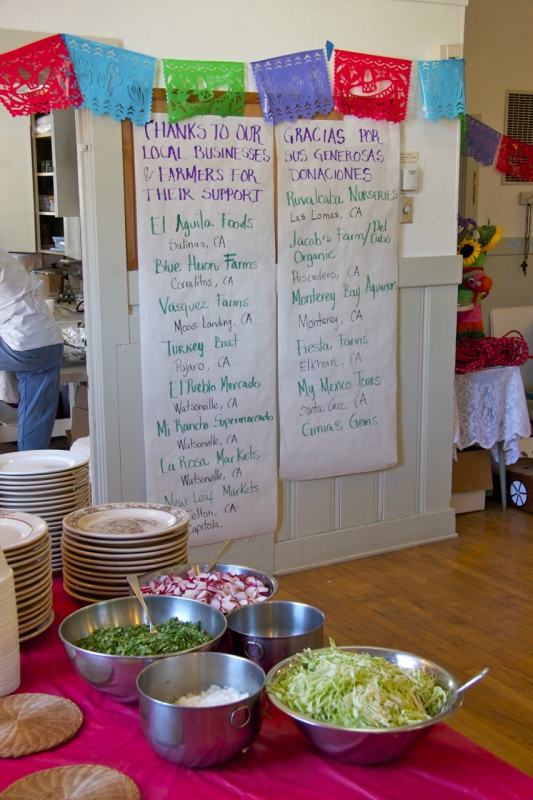 THANKS TO OUR
LOCAL BUSINESSES
& FARMERS FOR
THEIR SUPPORT
El Aguila Foods
Salinas, CA
Blue Heron Farms
Corralitos, CA
Vasquez Farms
Moss Landing, CA
Turkey Boat
Pajaro, CA
El Pueblo Mercado
Watsonville, CA
Mi Rancho Supermercado
Watsonville, CA
La Rosa Markets
Watsonville, CA
New Leaf Markets
Felton, CA
Capitola
GRACIAS POR
SUS GENEROSAS
DONACIONES
Ruvalcaba Nurseries
Las Lomas, CA
Jacob's Farm/Del Cabo
Organic
Pescadero, CA
Monterey Bay Aquarium
Monterey, CA
Fiesta Farms
Elkhorn, CA
My Mexico Tours
Santa Cruz, CA
Gems